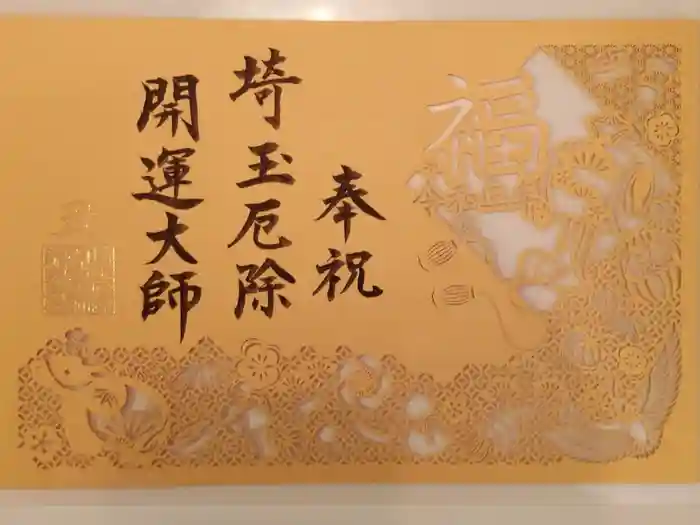 福
奉祝
埼玉厄除
開運大師